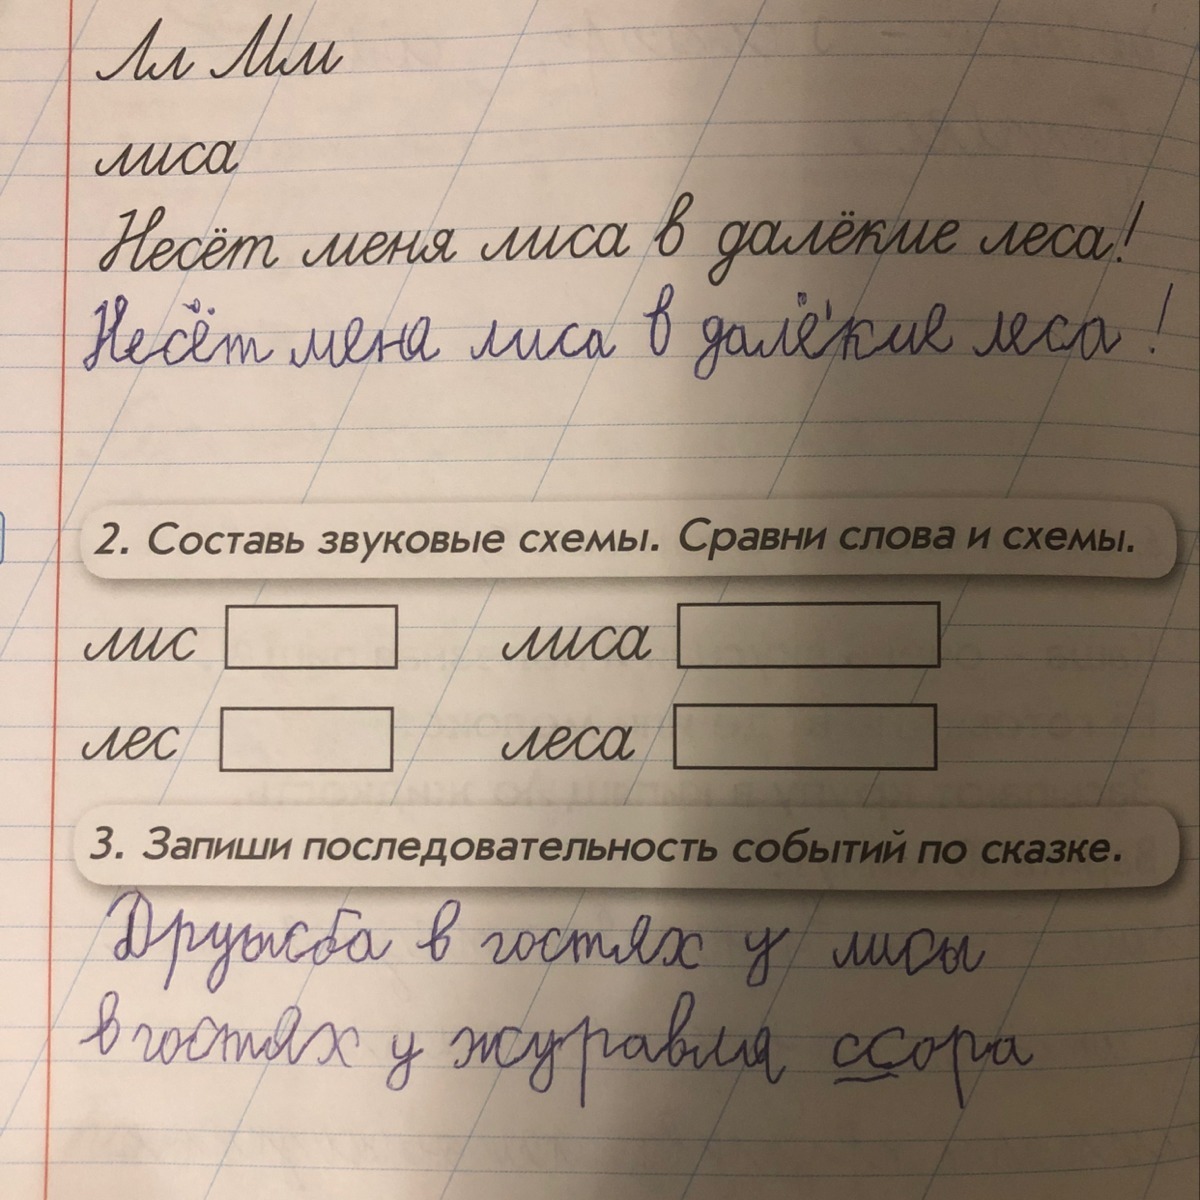 Лл Мм
лиса
Несёт меня лиса в далёкие леса!
Несёт меня лиса в далёкие леса!
2. Составь звуковые схемы. Сравни слова и схемы.
лис лиса
лес леса
3. Запиши последовательность событий по сказке.
Дружба в гостях у лисы
в гостях у журавля ссора